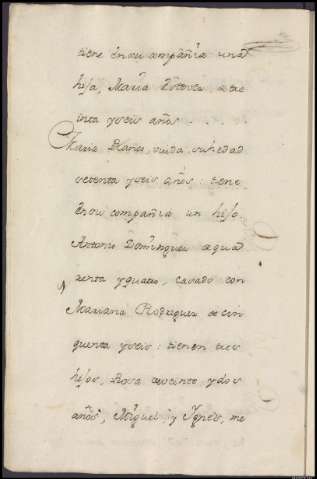 tiene en su compañia una
hija, Maria Esteves, de tre
inta y seis años.
Maria Blanca viuda, su hedad
setenta y seis años: tiene
en su compañia un hijo
Antonio Dominguez de qua
renta y quatro, casado con
Mariana Rodriguez de cin
quenta y seis: tienen tres
hijos, Rosa de veinte y dos
años, Miguel y Ygnes, me